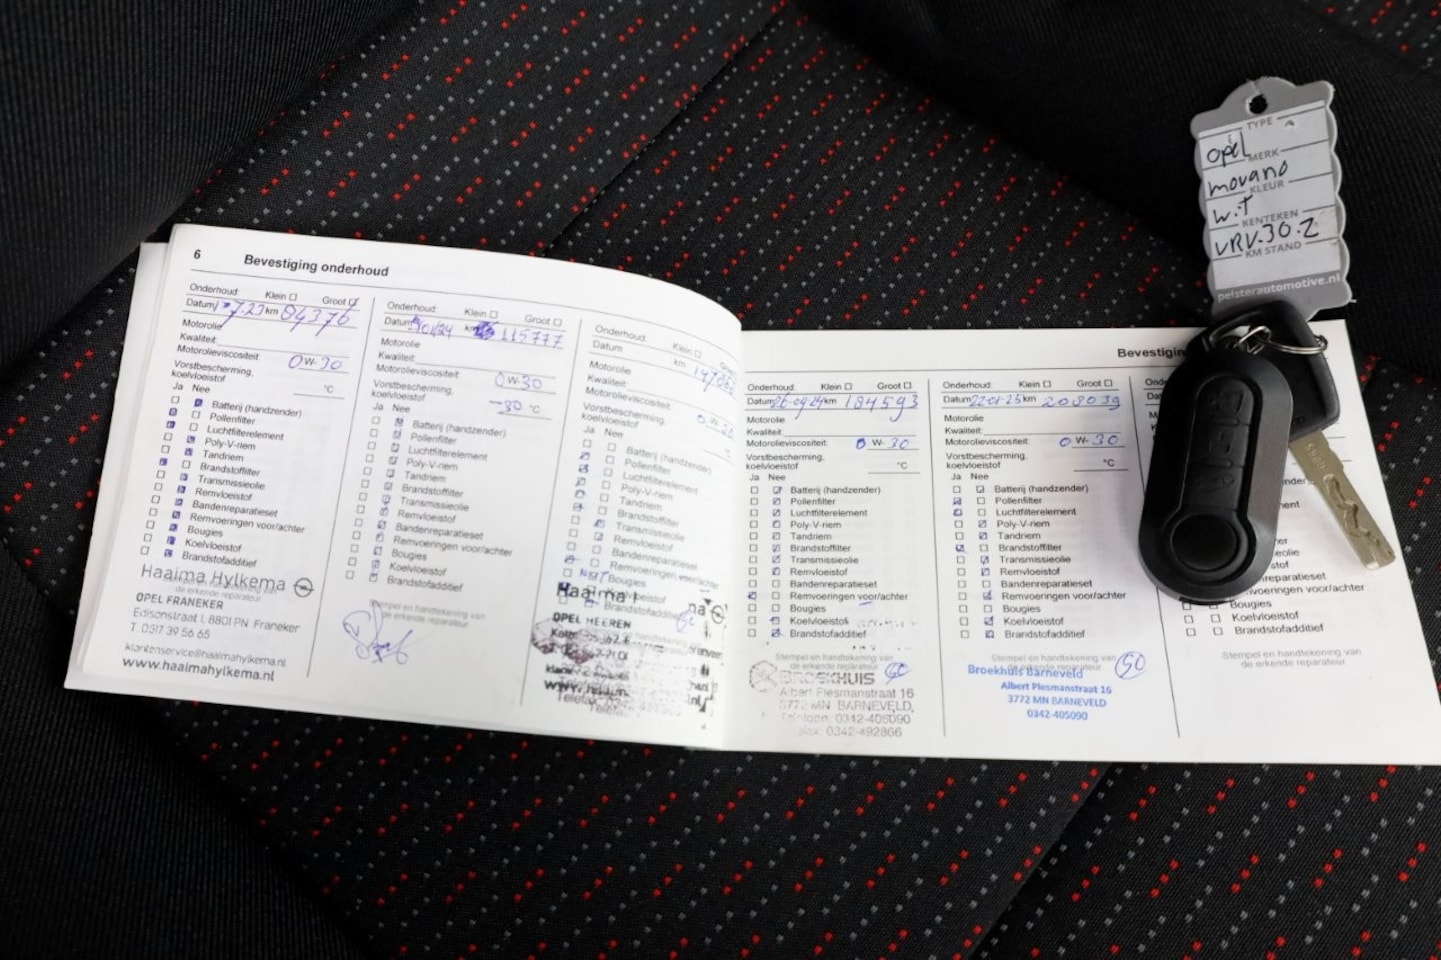 6 Bevestiging onderhoud
Onderhoud: Klein Groot
Datum 7-23 km 84376
Motorolie
Kwaliteit:
Motorolieviscositeit: 0 W- 30
Vorstbescherming,
koelvloeistof °C
Ja Nee
Batterij (handzender)
Pollenfilter
Luchtfilterelement
Poly-V-riem
Tandriem
Brandstoffilter
Transmissieolie
Remvloeistof
Bandenreparatieset
Remvoeringen voor/achter
Bougies
Koelvloeistof
Brandstofadditief
Haaima Hylkema
OPEL FRANEKER
Edisonstraat 1, 8801 PN Franeker
T. 0517 39 56 65
klantenservice@haaimahylkema.nl
www.haaimahylkema.nl
Onderhoud: Klein Groot
Datum 01/24 km 115777
Motorolie
Kwaliteit:
Motorolieviscositeit: 0 W- 30
Vorstbescherming,
koelvloeistof -30 °C
Ja Nee
Batterij (handzender)
Pollenfilter
Luchtfilterelement
Poly-V-riem
Tandriem
Brandstoffilter
Transmissieolie
Remvloeistof
Bandenreparatieset
Remvoeringen voor/achter
Bougies
Koelvloeistof
Brandstofadditief
Stempel en handtekening van
de erkende reparateur
Onderhoud: Klein
Datum km
Motorolie
Kwaliteit:
Motorolieviscositeit:
Vorstbescherming,
koelvloeistof
Ja Nee
Batterij (handzender)
Pollenfilter
Luchtfilterelement
Poly-V-riem
Tandriem
Brandstoffilter
Transmissieolie
Remvloeistof
Bandenreparatieset
Remvoeringen voor/achter
Bougies
Brandstofadditief
Haaima
OPEL HEEREN
Bevestigin
Onderhoud: Klein Groot
Datum 26-09-24 km 184593
Motorolie
Kwaliteit:
Motorolieviscositeit: 0 W- 30
Vorstbescherming,
koelvloeistof °C
Ja Nee
Batterij (handzender)
Pollenfilter
Luchtfilterelement
Poly-V-riem
Tandriem
Brandstoffilter
Transmissieolie
Remvloeistof
Bandenreparatieset
Remvoeringen voor/achter
Bougies
Koelvloeistof
Brandstofadditief
Stempel en handtekening van
de erkende reparateur
BROEKHUIS
Albert Plesmanstraat 16
3772 MN BARNEVELD,
Telefoon: 0342-405090
Fax: 0342-492866
Onderhoud: Klein Groot
Datum 22-01-25 km 203039
Motorolie
Kwaliteit:
Motorolieviscositeit: 0 W- 30
Vorstbescherming,
koelvloeistof °C
Ja Nee
Batterij (handzender)
Pollenfilter
Luchtfilterelement
Poly-V-riem
Tandriem
Brandstoffilter
Transmissieolie
Remvloeistof
Bandenreparatieset
Remvoeringen voor/achter
Bougies
Koelvloeistof
Brandstofadditief
Stempel en handtekening van
de erkende reparateur
Broekhuis Barneveld
Albert Plesmanstraat 16
3772 MN BARNEVELD
0342-405090
Bougies
Koelvloeistof
Brandstofadditief
Stempel en handtekening van
de erkende reparateur
TYPE
opel
MERK
movano
KLEUR
wit
KENTEKEN
VRV-30-Z
KM STAND
pelsterautomotive.nl